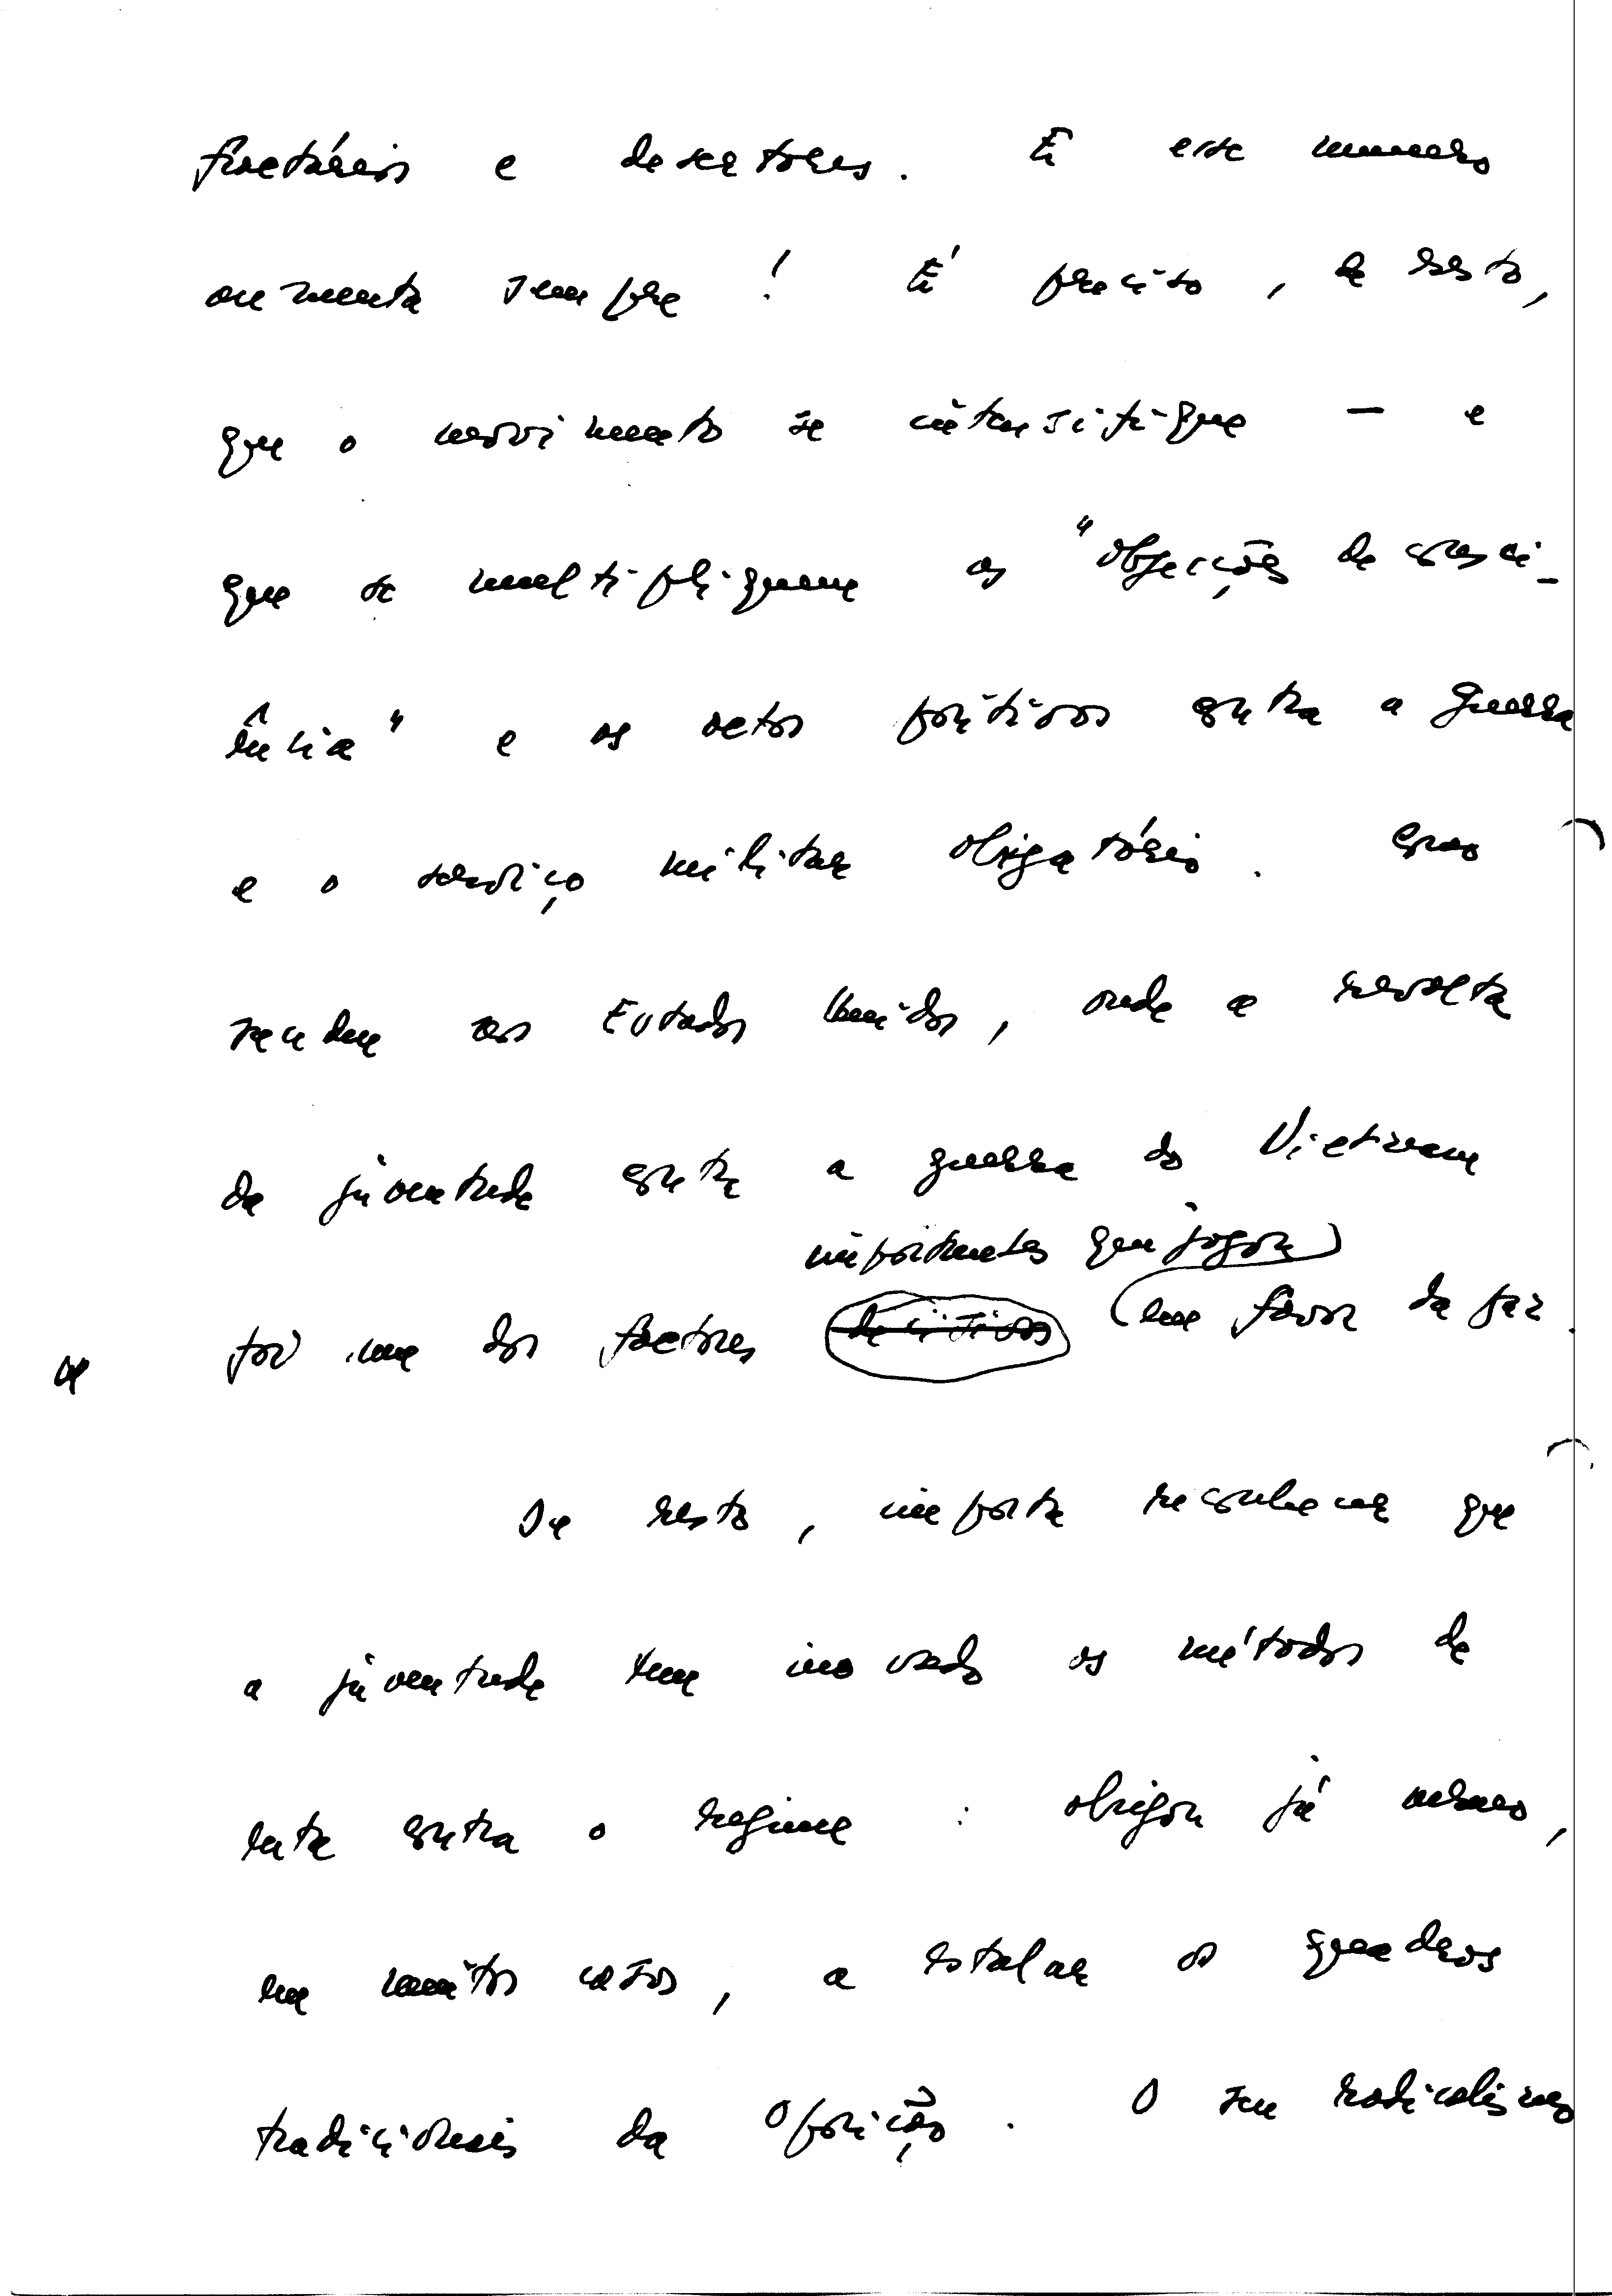 fractários e desertores. E esse número
aumenta sempre! É preciso, de resto,
que o movimento se intensifique — e
que se multipliquem as "objecções de consci-
ência" e os actos políticos contra a guerra
e o serviço militar obrigatório. Como
sucedeu nos Estados Unidos, onde a revolta
da juventude contra a guerra do Vietnam
importantes que jogou
foi um dos factores decisivos em favor da paz.
De resto, importa reconhecer que
a juventude tem inovado os métodos de
luta contra o regime: obrigou já mesmo,
em muitos casos, a estalar os quadros
tradicionais da Oposição. O seu radicalismo